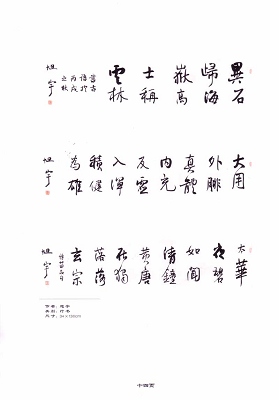 異石
歸海
嶽高
士稱
雲林
丙戌
之秋
旭宇
大用
外腓
真體
內充
反虛
入渾
積健
為雄
旭宇
太華
夜碧
如聞
清鐘
黃唐
在獨
落落
玄宗
旭宇
作者：旭宇
类别：行书
尺寸：
十四页